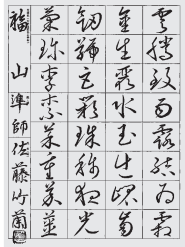 雲騰致雨露結為霜
金生麗水玉出崑岡
劔號巨闕珠稱夜光
菓珍李柰菜重芥薑
福山 準師 佐藤竹蘭